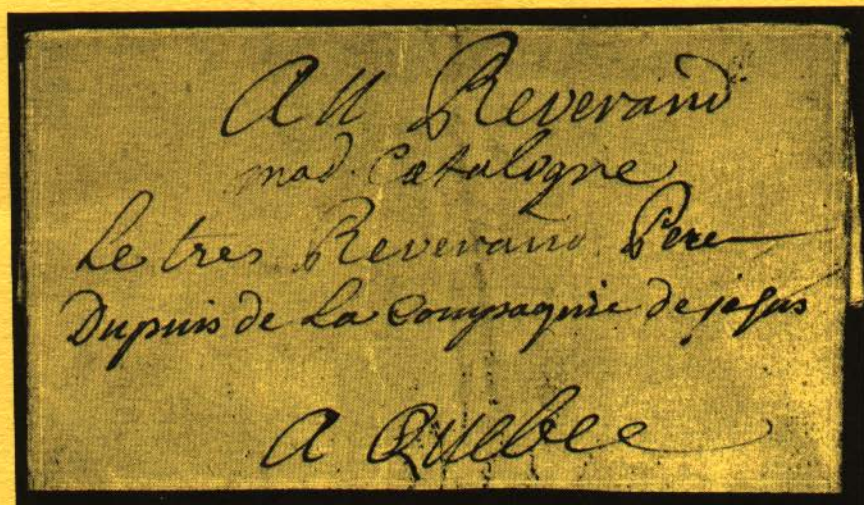 Au Reverand
mad. Catalogne
Le tres Reverand Pere
Dupuis de La Compagnie de jesus
a Quebec